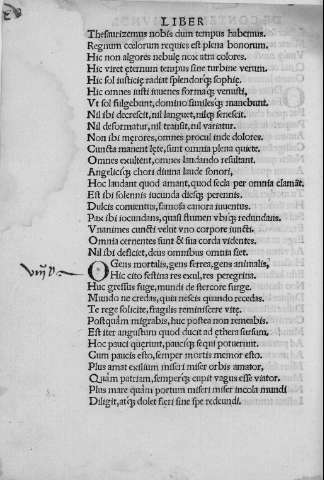 LIBER
Thesaurizemus nobis dum tempus habemus.
Regnum cœlorum requies est plena bonorum.
Hic non algores nebulę nox atra colores.
Hic viret ęternum tempus sine turbine vernum.
Hic sol iusticię radiat splendorq; sophię.
Hic omnes iusti iuuenes formaq; venusti,
Vt sol fulgebunt, domino similesq; manebunt.
Nil ibi decrescit, nil languet, nilq; senescit.
Nil deformatur, nil transit, nil variatur.
Non ibi męrores, omnes procul inde dolores.
Cuncta manent lęte, sunt omnia plena quiete.
Omnes exultent, omnes laudando resultant.
Angelicq; chori diuina laude sonori,
Hoc laudant quod amant, quod secla per omnia clamāt.
Est ibi solennis iucunda diesq; perennis.
Dulcis conuentus, famosa canora iuuentus.
Pax ibi iocundans, quasi flumen vbiq; redundans.
Vnanimes cuncti velut vno corpore iuncti.
Omnia cernentes sunt & sua corda videntes.
Nil ibi deficiet, deus omnibus omnia fiet.
O Gens mortalis, gens ferrea, gens animalis,
Hic cito festina res exul, res peregrina.
Huc gressus fuge, mundi de stercore surge.
Mundo ne credas, quia nescis quando recedas.
Te rege solicite, fragilis reminiscere vitę.
Postquàm migrabis, huc postea non remeabis.
Est iter angustum quod ducit ad ęthera iustum,
Hoc pauci quęrunt, paucisq; sequi potuerunt.
Cum paucis esto, semper mortis memor esto.
Plus amat exilium miseri miser orbis amator,
Quàm patriam, semperq; cupit vagus esse viator.
Plus mare quàm portum miseri miser incola mundi
Diligit, atq; dolet fieri sine spe redeundi.